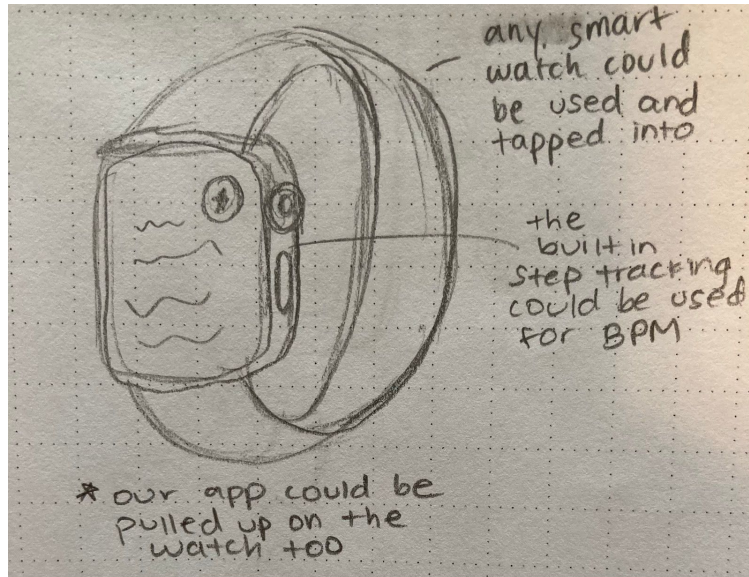 any smart
watch could
be used and
tapped into
the
built in
step tracking
could be used
for BPM
* our app could be
pulled up on the
watch too